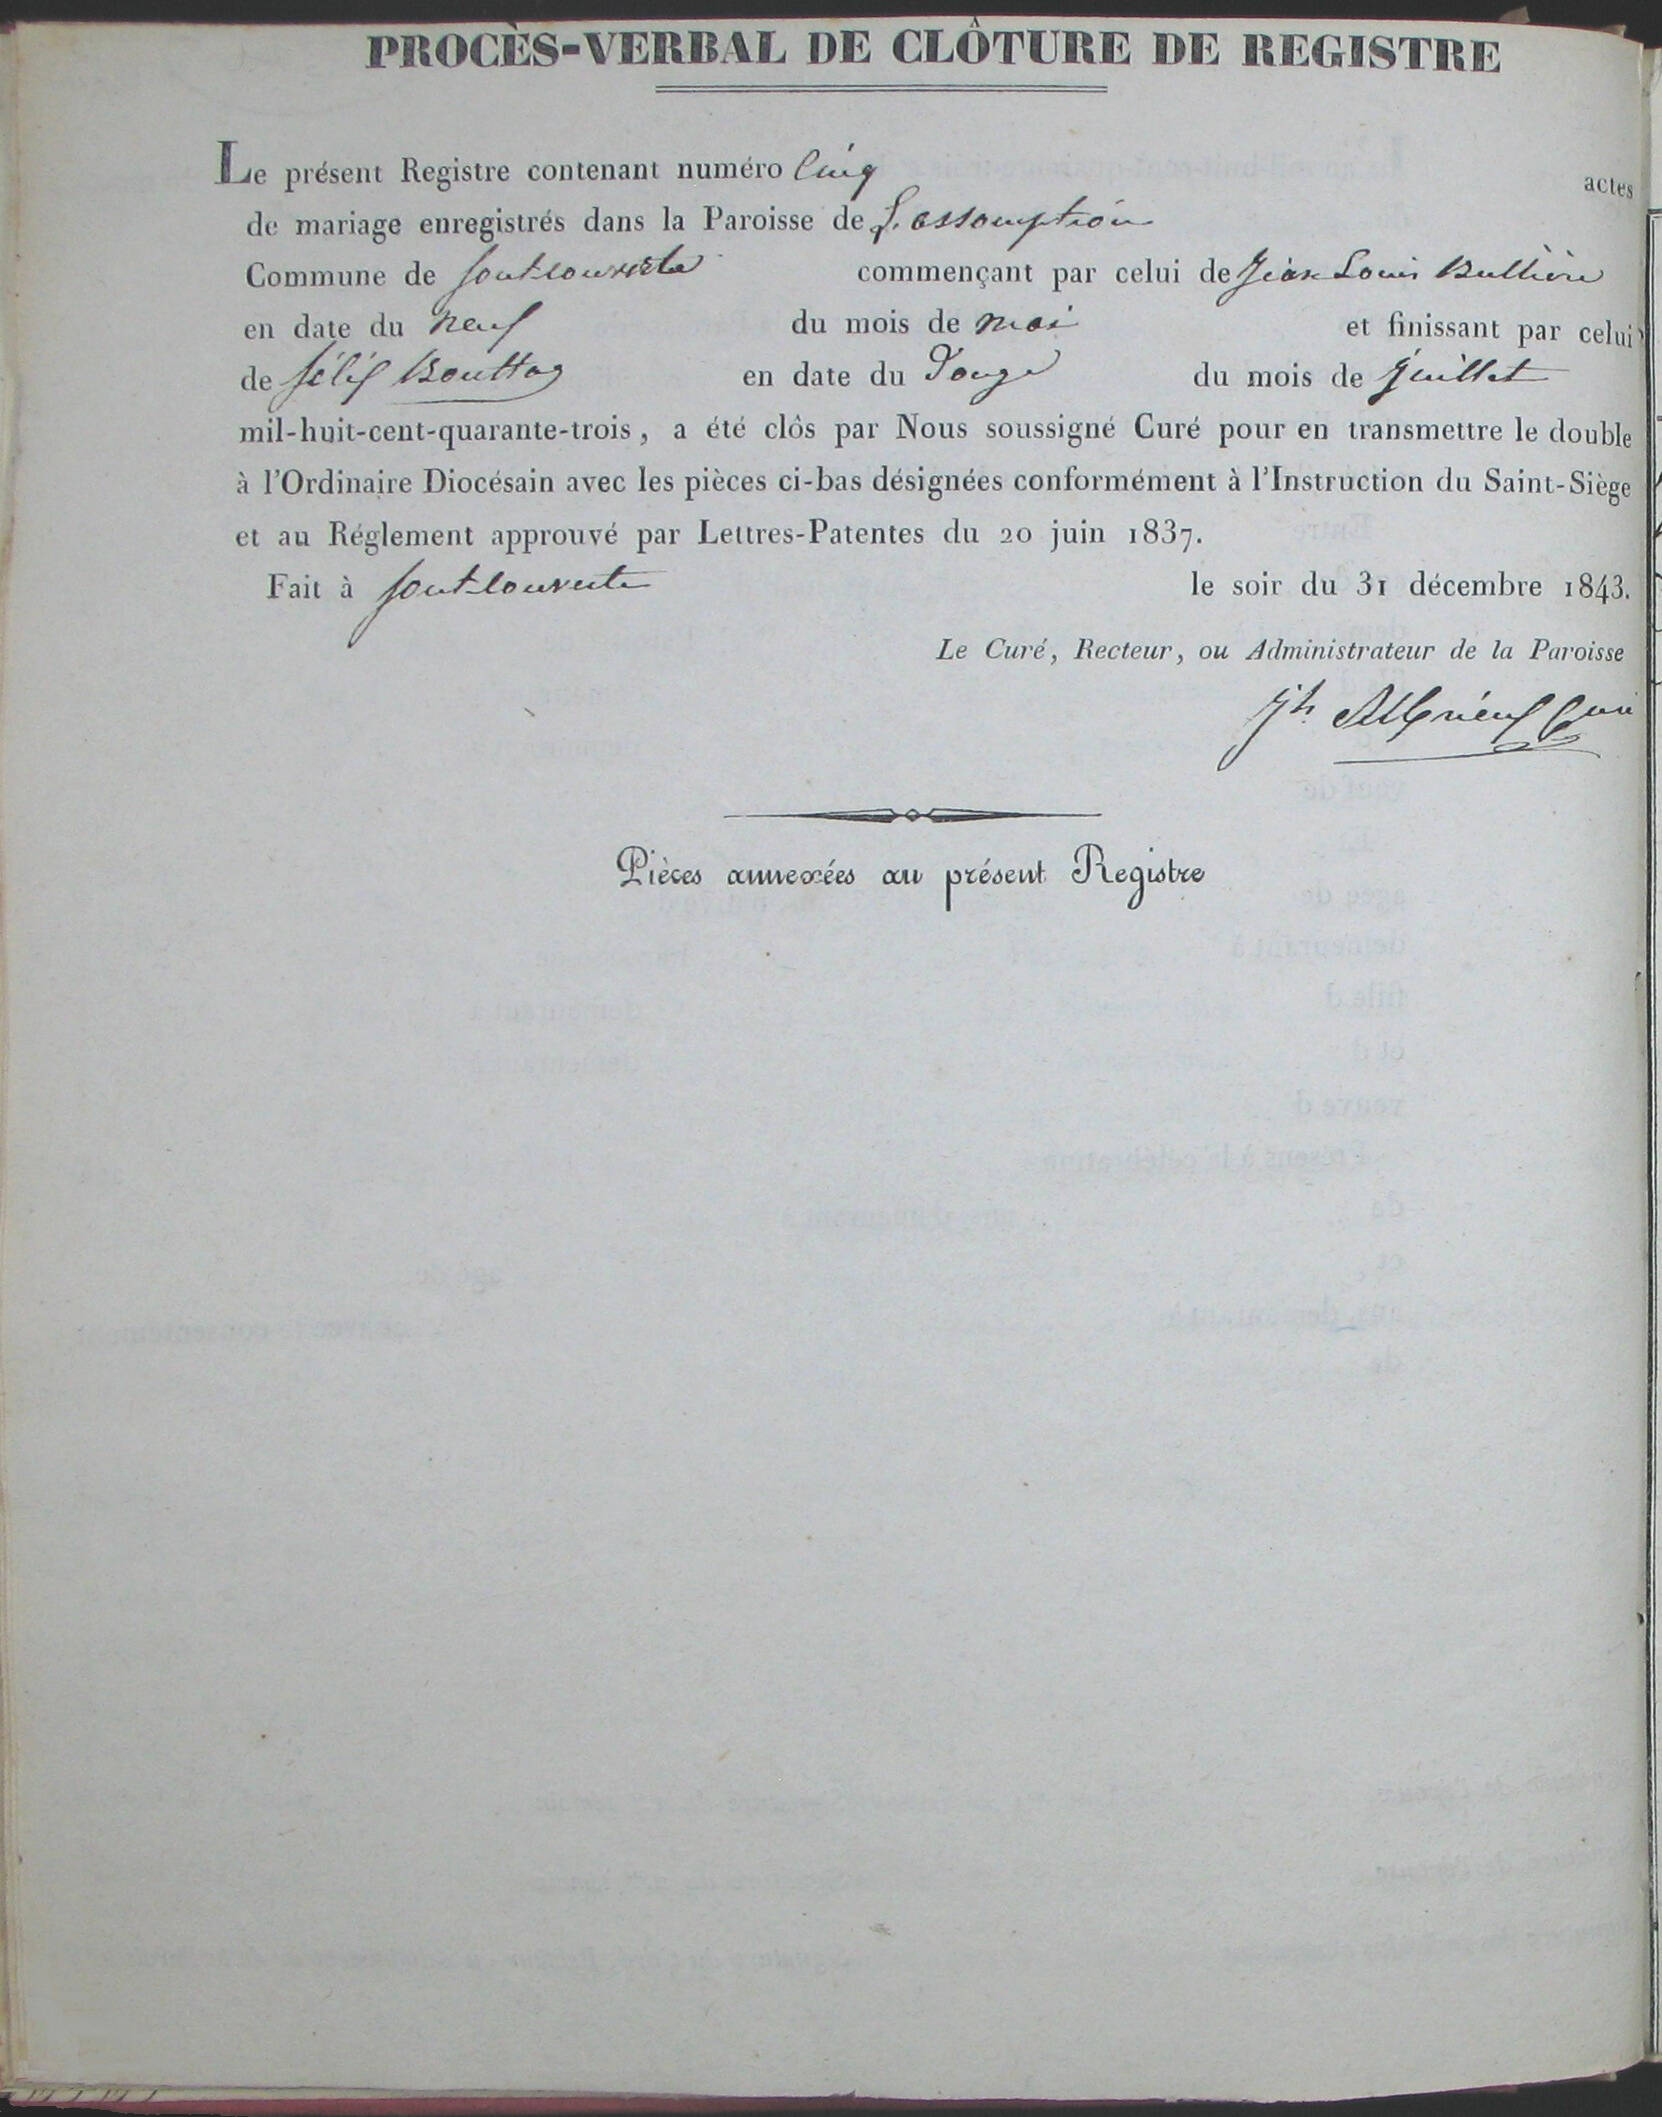 PROCÈS-VERBAL DE CLÔTURE DE REGISTRE
Le présent Registre contenant numéro Cinq actes
de mariage enregistrés dans la Paroisse de L'assomption
Commune de Fontcouverte commençant par celui de Jean Louis Bullion
en date du neuf du mois de mai et finissant par celui
de félix Bouttaz en date du Douze du mois de Juillet
mil-huit-cent-quarante-trois, a été clôs par Nous soussigné Curé pour en transmettre le double
à l'Ordinaire Diocésain avec les pièces ci-bas désignées conformément à l'Instruction du Saint-Siège
et au Réglement approuvé par Lettres-Patentes du 20 juin 1837.
Fait à fontcouverte le soir du 31 décembre 1843.
Le Curé, Recteur, ou Administrateur de la Paroisse
Jh. Curé
Pièces annexées au présent Registre